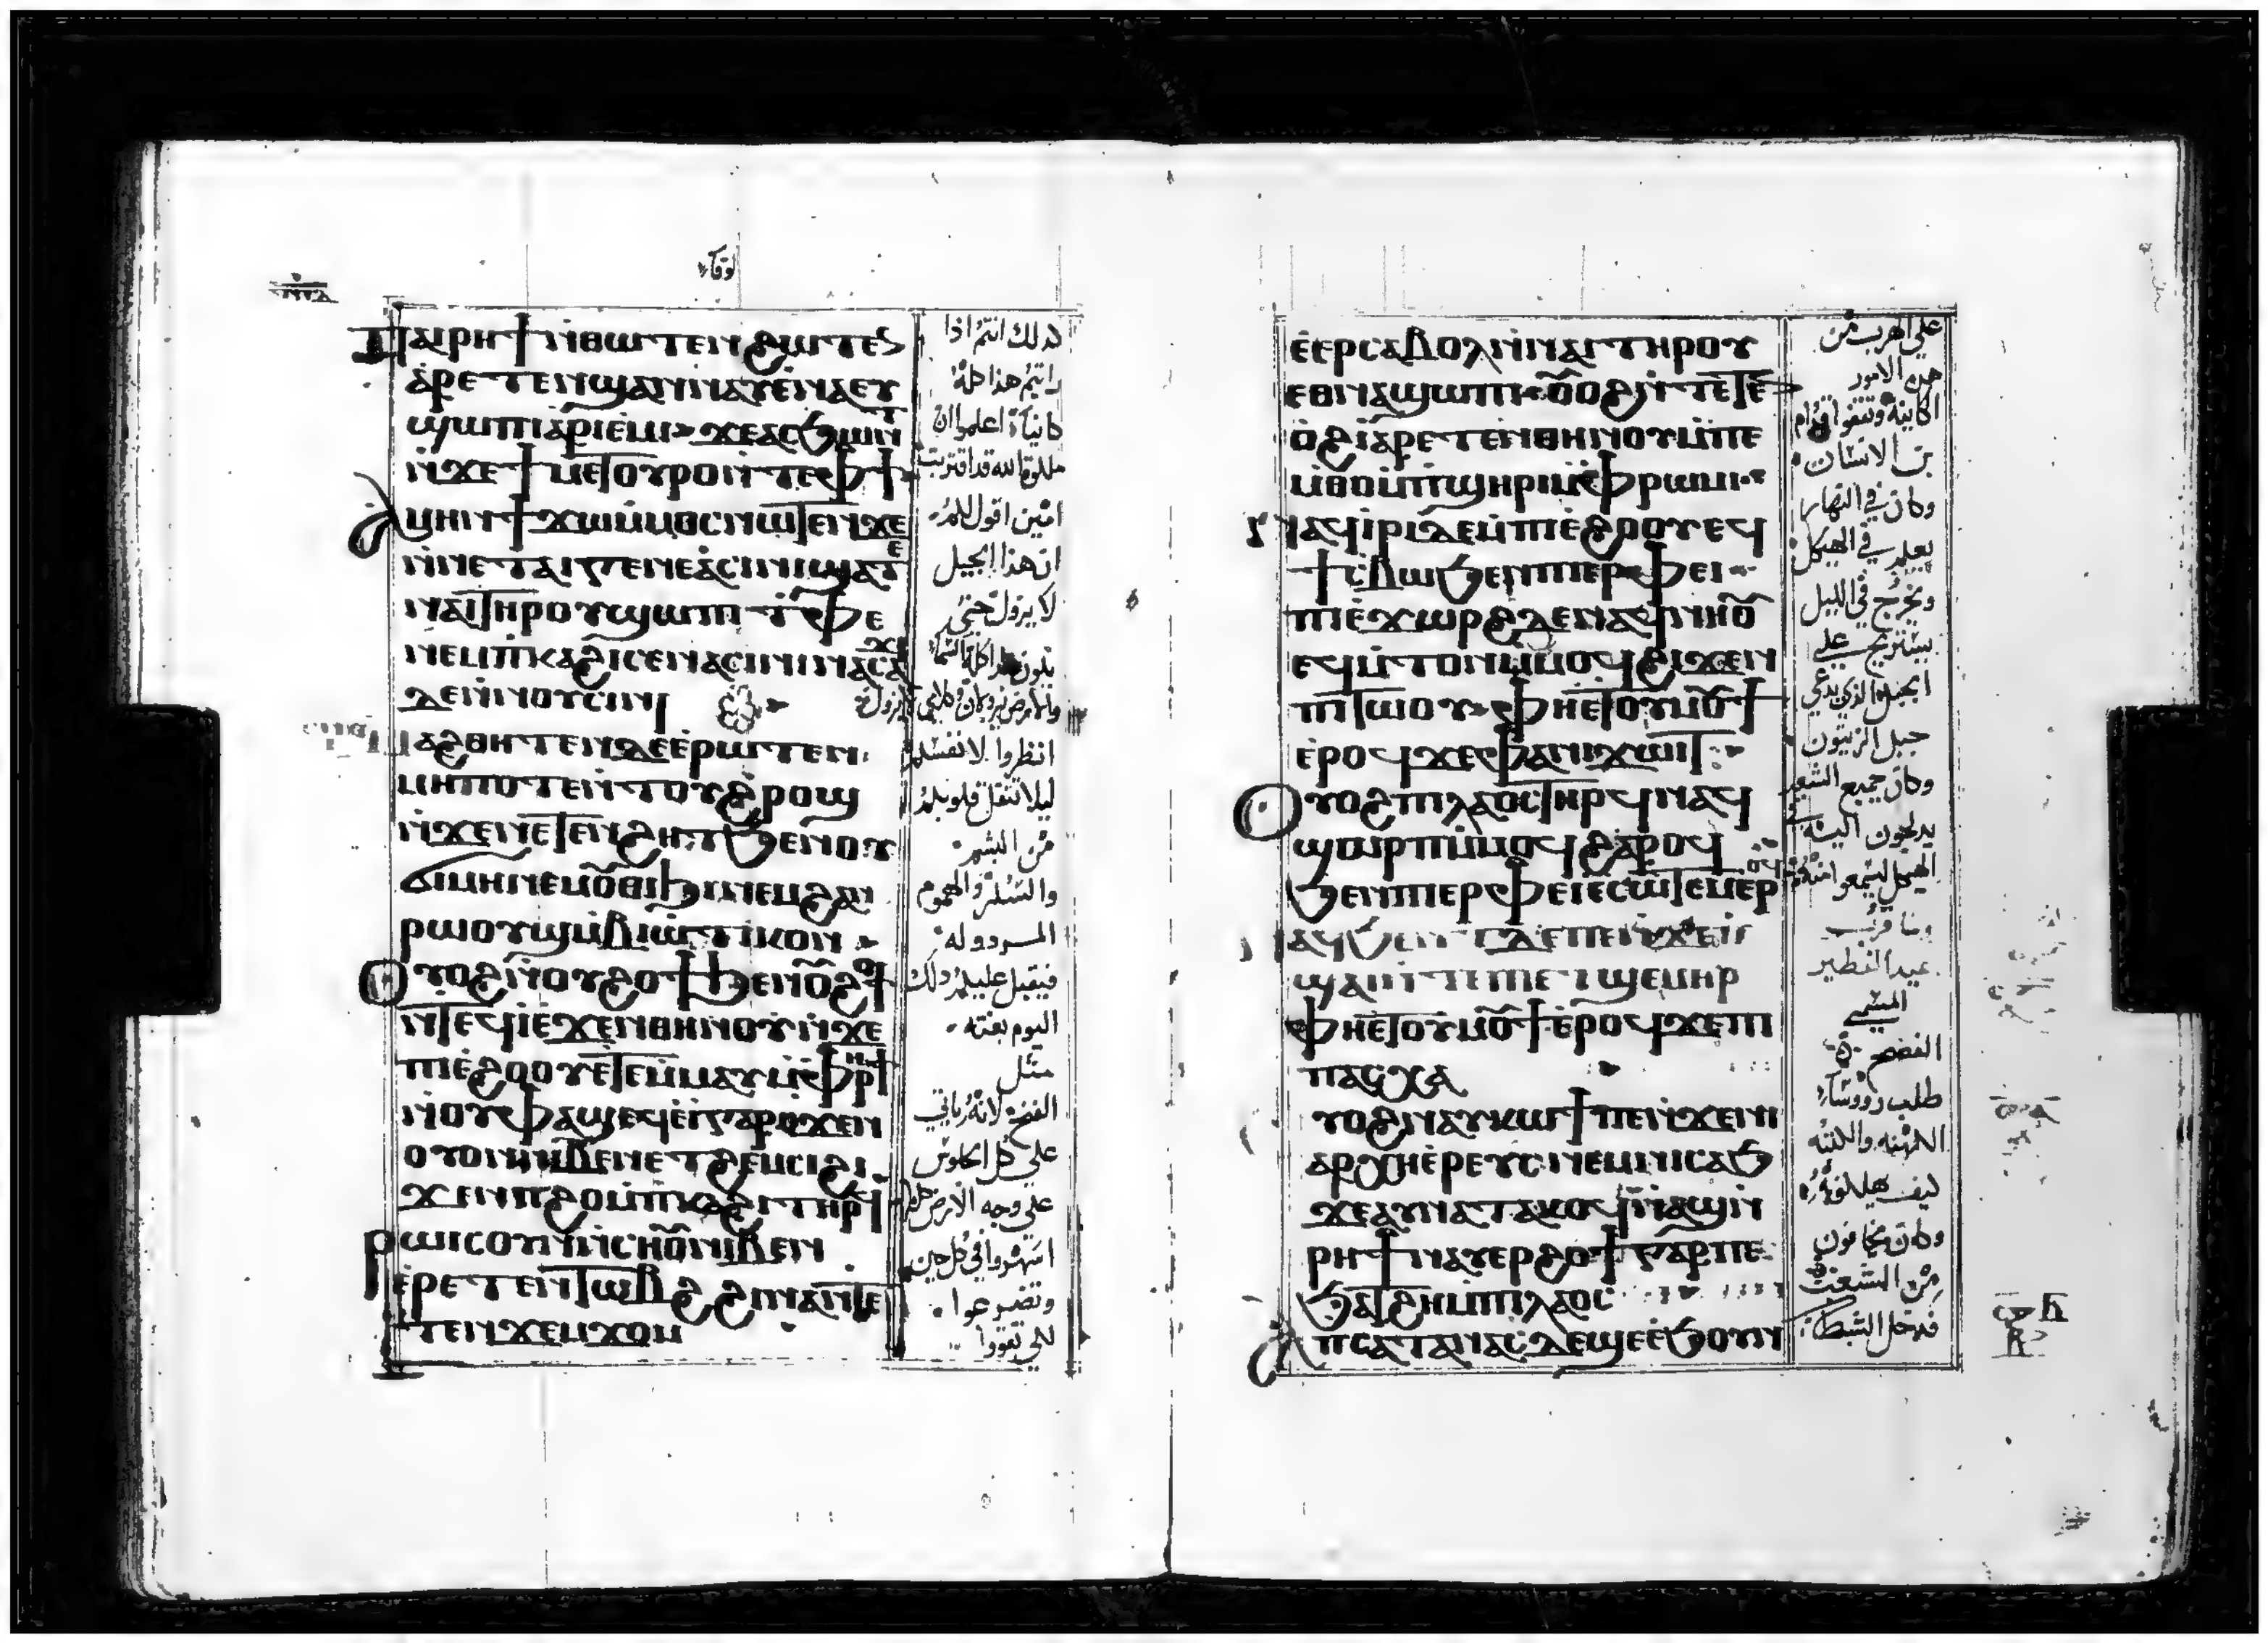 لوقا
ⲡⲁⲓⲣⲏϯ ⲛ̇ⲑⲱⲧⲉⲛ ϩⲱⲧⲉⲛ
ⲁ̇ⲣⲉⲧⲉⲛϣⲁⲛⲛⲁⲩ ⲉ̇ⲛⲁⲓ ⲉⲩ
ϣⲱⲡⲓ ⲁ̇ⲣⲓⲉ̇ⲙⲓ ϫⲉ ⲁⲥϧⲱⲛⲧ
ⲛ̇ϫⲉ ϯⲙⲉⲧⲟⲩⲣⲟ ⲛ̇ⲧⲉ ⲫϯ
ⲁⲙⲏⲛ ϯϫⲱ ⲙ̇ⲙⲟⲥ ⲛⲱⲧⲉⲛ ϫⲉ
ⲛ̇ⲛⲉ ⲧⲁⲓⲅⲉⲛⲉⲁ̇ ⲥⲓⲛⲓ ϣⲁⲧⲉ
ⲛⲁⲓ ⲧⲏⲣⲟⲩ ϣⲱⲡⲓ ⲧ̇ⲫⲉ
ⲛⲉⲙ ⲡ̇ⲕⲁϩⲓ ⲥⲉⲛⲁⲥⲓⲛⲓ ⲛⲁⲥⲁϫⲓ
ⲇⲉ ⲛ̇ⲛⲟⲩⲥⲓⲛⲓ
ⲙⲁϩⲑⲏⲧⲉⲛ ⲇⲉ ⲉ̇ⲣⲱⲧⲉⲛ
ⲙⲏⲡⲟⲧⲉ ⲛ̇ⲧⲟⲩϩⲣⲟϣ
ⲛ̇ϫⲉ ⲛⲉⲧⲉⲛϩⲏⲧ ϧⲉⲛ ⲟⲩ
ⲥⲓⲙⲏ ⲛⲉⲙ ⲟⲩⲑⲓϧⲓ ⲛⲉⲙ ϩⲁⲛ
ⲣⲱⲟⲩϣ ⲙ̇ⲃⲓⲱⲧⲓⲕⲟⲛ
ⲟⲩⲟϩ ⲛ̇ⲟⲩϩⲟϯ ϧⲉⲛ ⲟⲩϩⲟϯ
ⲛ̇ⲧⲉϥⲓ̇ ⲉ̇ϫⲉⲛ ⲑⲏⲛⲟⲩ ⲛ̇ϫⲉ
ⲡⲓⲉ̇ϩⲟⲟⲩ ⲉ̇ⲧⲉⲙ̇ⲙⲁⲩ ⲙ̇ⲫⲣⲏϯ
ⲛ̇ⲟⲩⲫⲁϣ ⲉϥⲉ̇ⲓ̇ ⲅⲁⲣ ⲉ̇ϫⲉⲛ
ⲟⲩⲟⲛ ⲛⲓⲃⲉⲛ ⲉⲧϩⲉⲙⲥⲓ ϩⲓ
ϫⲉⲛ ⲡ̇ϩⲟ ⲙ̇ⲡ̇ⲕⲁϩⲓ ⲧⲏⲣϥ
ⲣⲱⲓⲥ ⲟⲩⲛ ⲛ̇ⲥⲏⲟⲩ ⲛⲓⲃⲉⲛ
ⲉ̇ⲣⲉⲧⲉⲛⲧⲱⲃϩ ϩⲓⲛⲁ ⲛ̇ⲧⲉ
ⲧⲉⲛϫⲉⲙϫⲟⲙ
كذلك انتم اذا
رايتم هذا كله
كاينا اعلموا ان
ملكوة الله قد اقتربت
امين اقول لكم
ان هذا الجيل
لا يزول حتى
تكون هذا كله السما
والارض يزولان وكلامي لا يزول
انظروا لانفسكم
ليلا تثقل قلوبكم
من الشبع
والسكر والهموم
فيقبل عليكم ذلك
اليوم بغته
مثل
الفخ لانه ياتي
على كل الجلوس
على وجه الارض كلها
اسهروا في كل حين
وتضرعوا
لكي تقووا
ⲉ̇ⲉⲣⲥⲁⲃⲟⲗ ⲛ̇ⲛⲁⲓ ⲧⲏⲣⲟⲩ
ⲉⲑⲛⲁϣⲱⲡⲓ ⲟⲩⲟϩ ⲛ̇ⲧⲉⲧⲉⲛ
ⲟ̇ϩⲓ ⲉ̇ⲣⲉⲧⲉⲛ ⲑⲏⲛⲟⲩ ⲙ̇ⲡⲉ
ⲙ̇ⲑⲟ ⲙ̇ⲡ̇ϣⲏⲣⲓ ⲙ̇ⲫⲣⲱⲙⲓ
ⲛⲁϥⲓ̇ⲣⲓ ⲇⲉ ⲙ̇ⲡⲓⲉ̇ϩⲟⲟⲩ ⲉϥ
ϯⲥ̇ⲃⲱ ϧⲉⲛ ⲡⲓⲉⲣⲫⲉⲓ
ⲡⲓⲉ̇ϫⲱⲣϩ ⲇⲉ ⲛⲁϥⲛⲏⲟⲩ
ⲉϥⲙ̇ⲧⲟⲛ ⲙ̇ⲙⲟϥ ϩⲓϫⲉⲛ
ⲡⲓⲧⲱⲟⲩ ⲫⲏ ⲉ̇ⲧⲟⲩⲙⲟⲩϯ
ⲉ̇ⲣⲟϥ ϫⲉ ⲫⲁ ⲛⲓϫⲱⲓⲧ
ⲟⲩⲟϩ ⲡⲓⲗⲁⲟⲥ ⲧⲏⲣϥ ⲛⲁϥ
ϣⲱⲣⲡ ⲙ̇ⲙⲟϥ ϩⲁⲣⲟϥ
ϧⲉⲛ ⲡⲓⲉⲣⲫⲉⲓ ⲉⲥⲱⲧⲉⲙ ⲉ̇ⲣⲟϥ
ⲛⲁϥϧⲉⲛⲧ ⲇⲉ ⲡⲉ ⲛ̇ϫⲉ ⲡ̇
ϣⲁⲓ ⲛ̇ⲧⲉ ⲛⲓⲁⲧϣⲉⲙⲏⲣ
ⲫⲏ ⲉ̇ⲧⲟⲩⲙⲟⲩϯ ⲉ̇ⲣⲟϥ ϫⲉ ⲡ
ⲡⲁⲥⲭⲁ
ⲟⲩⲟϩ ⲛⲁⲩⲕⲱϯ ⲡⲉ ⲛ̇ϫⲉ ⲛⲓ
ⲁⲣⲭⲏⲉ̇ⲣⲉⲩⲥ ⲛⲉⲙ ⲛⲓⲥⲁϧ
ϫⲉ ⲁⲩⲛⲁⲧⲁⲕⲟϥ ⲛ̇ⲁϣ ⲛ̇
ⲣⲏϯ ⲛⲁⲩⲉⲣϩⲟϯ ⲅⲁⲣ ⲡⲉ
ϧⲁⲧϩⲏ ⲙ̇ⲡⲓⲗⲁⲟⲥ
ⲁⲡⲥⲁⲧⲁⲛⲁⲥ ⲇⲉ ϣⲉ ⲉ̇ϧⲟⲩⲛ
على الهرب من
هذه الامور
الكاينة وتقفوا قدام
بن الانسان
وكان في النهار
يعلم في الهيكل
ويخرج في الليل
يستريح على
الجبل الذي يدعى
جبل الزيتون
وكان جميع الشعب
يدلجون اليه في
الهيكل ليسمعوا منه
وما قرب
عيد الفطير
المسمى
الفصح
طلب رووسا
الكهنه والكتبه
كيف يهلكونه
وكان يخافون
من الشعب
فدخل الشيطان